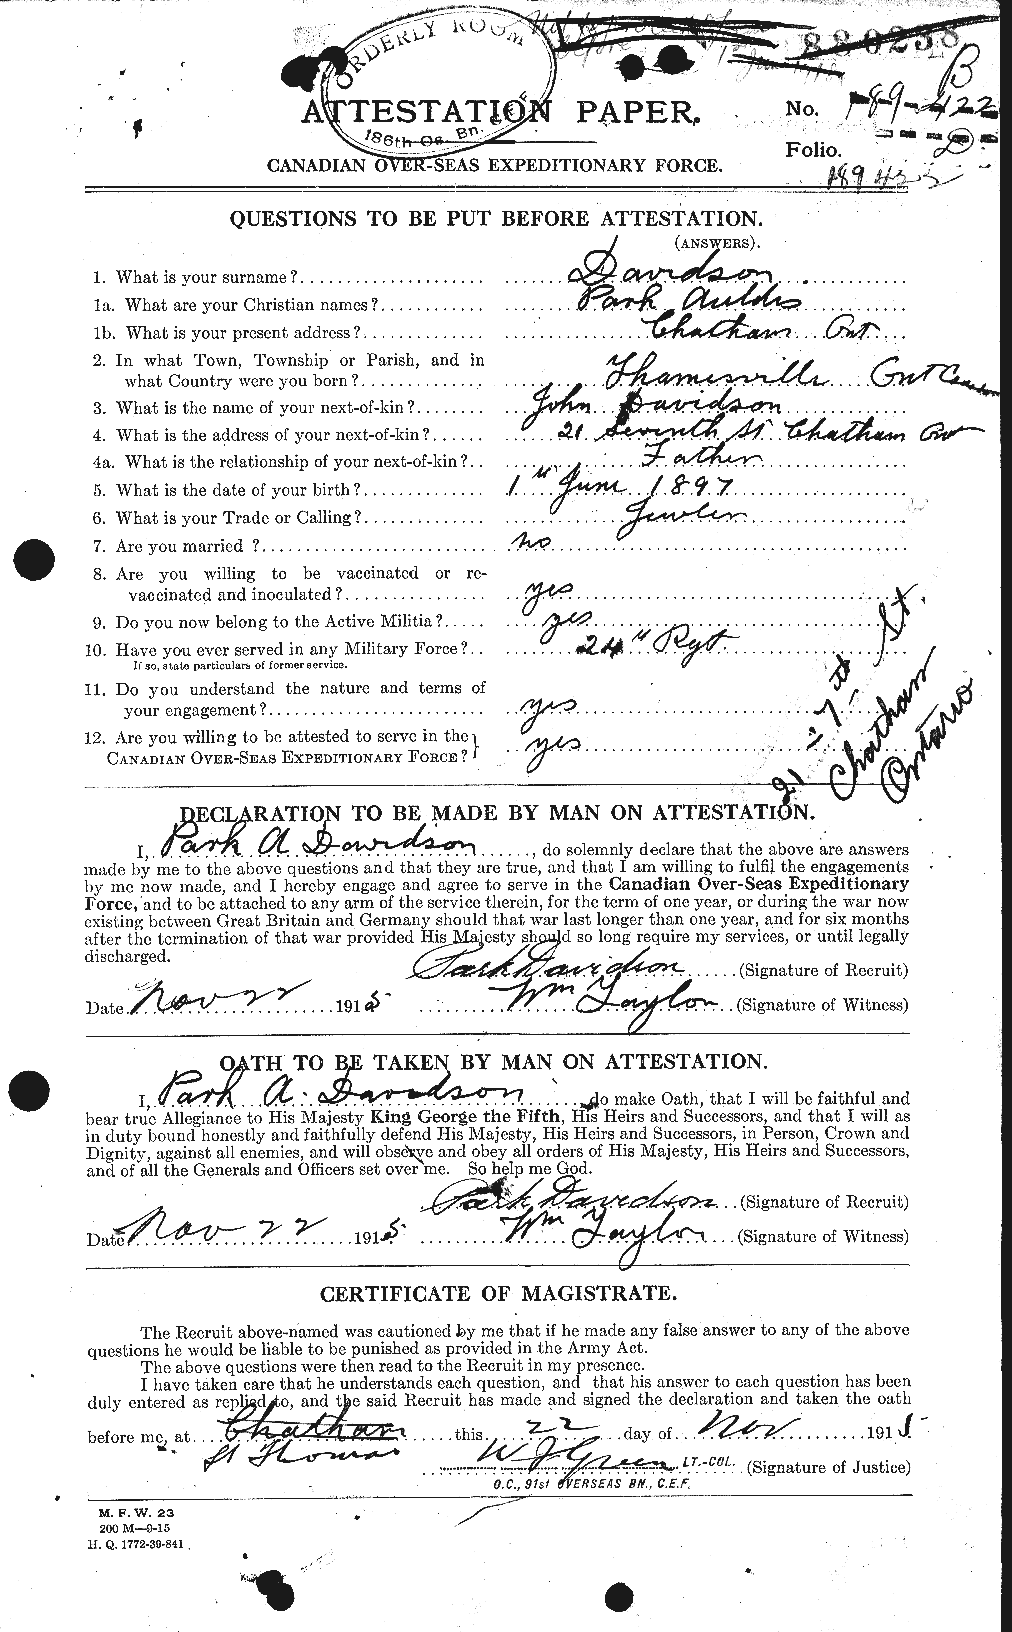 880238
ORDERLY ROOM
186th Os. Bn.
B
ATTESTATION PAPER.
No. 189422
Folio. D
CANADIAN OVER-SEAS EXPEDITIONARY FORCE.
QUESTIONS TO BE PUT BEFORE ATTESTATION.
(ANSWERS).
1. What is your surname? Davidson
1a. What are your Christian names? Park Auldis
1b. What is your present address? Chatham Ont
2. In what Town, Township or Parish, and in
what Country were you born? Thamesville Ont
3. What is the name of your next-of-kin? John Davidson
4. What is the address of your next-of-kin? 21 Seventh St Chatham Ont
4a. What is the relationship of your next-of-kin? Father
5. What is the date of your birth? 1st June 1897
6. What is your Trade or Calling? Jewler
7. Are you married? no
8. Are you willing to be vaccinated or re-
vaccinated and inoculated? yes
9. Do you now belong to the Active Militia? yes
10. Have you ever served in any Military Force? 24" Rgt.
If so, state particulars of former service.
11. Do you understand the nature and terms of
your engagement? yes
12. Are you willing to be attested to serve in the
CANADIAN OVER-SEAS EXPEDITIONARY FORCE? yes
21 - 7th St.
Chatham
Ontario
DECLARATION TO BE MADE BY MAN ON ATTESTATION.
I, Park A Davidson, do solemnly declare that the above are answers
made by me to the above questions and that they are true, and that I am willing to fulfil the engagements
by me now made, and I hereby engage and agree to serve in the Canadian Over-Seas Expeditionary
Force, and to be attached to any arm of the service therein, for the term of one year, or during the war now
existing between Great Britain and Germany should that war last longer than one year, and for six months
after the termination of that war provided His Majesty should so long require my services, or until legally
discharged.
Park Davidson (Signature of Recruit)
Date Nov 22 1915 Wm Taylor (Signature of Witness)
OATH TO BE TAKEN BY MAN ON ATTESTATION.
I, Park A. Davidson do make Oath, that I will be faithful and
bear true Allegiance to His Majesty King George the Fifth, His Heirs and Successors, and that I will as
in duty bound honestly and faithfully defend His Majesty, His Heirs and Successors, in Person, Crown and
Dignity, against all enemies, and will observe and obey all orders of His Majesty, His Heirs and Successors,
and of all the Generals and Officers set over me. So help me God.
Park Davidson (Signature of Recruit)
Date Nov 22 1915 Wm Taylor (Signature of Witness)
CERTIFICATE OF MAGISTRATE.
The Recruit above-named was cautioned by me that if he made any false answer to any of the above
questions he would be liable to be punished as provided in the Army Act.
The above questions were then read to the Recruit in my presence.
I have taken care that he understands each question, and that his answer to each question has been
duly entered as replied to, and the said Recruit has made and signed the declaration and taken the oath
before me, at Chatham this 22 day of Nov 1915
St Thomas
W J Green LT.-COL. (Signature of Justice)
O.C., 91st OVERSEAS BN., C.E.F.
M. F. W. 23
200 M—9-15
H. Q. 1772-39-841